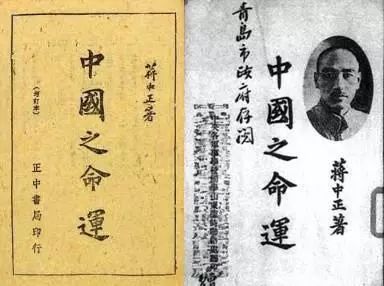 蔣中正著
中國之命運
(增訂本)
正中書局印行
青島市政府存閱
中國之命運
蔣中正著